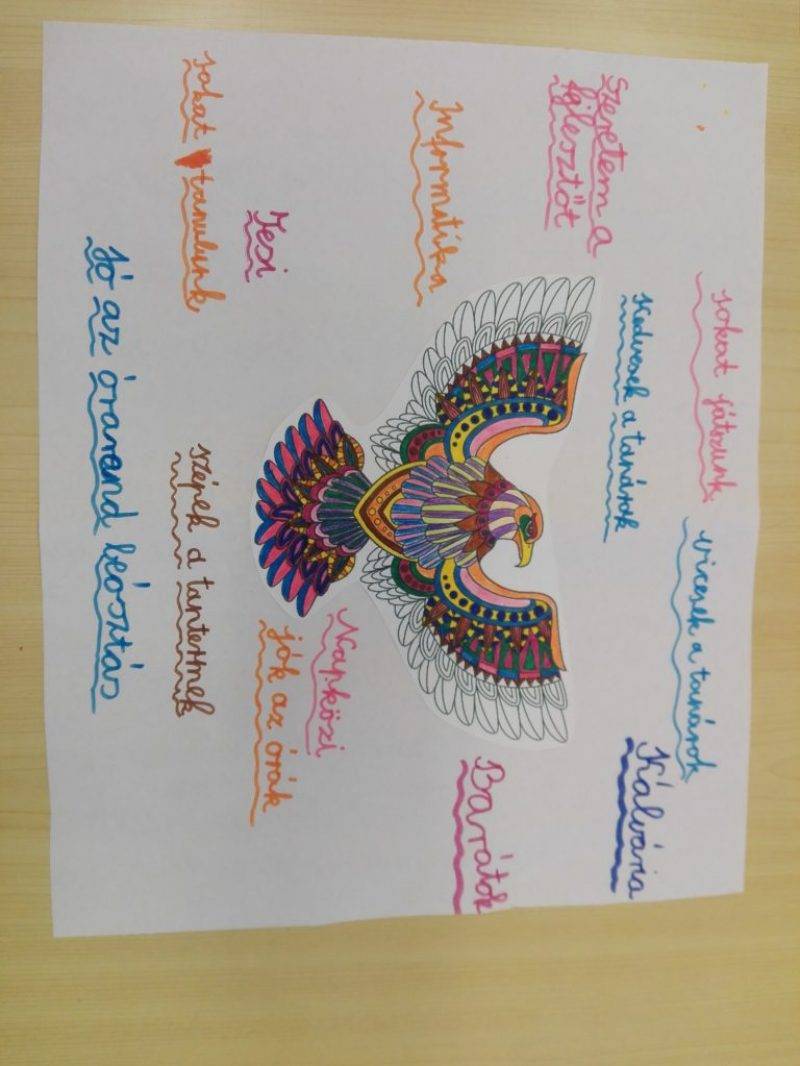 sokat játszunk
vicesek a tanárok
Szeretem a
fejlesztőt
Kedvesek a tanárok
Kálvária
Informatika
Barátok
Napközi
Tesi
jók az órák
sokat tanulunk
szépek a tantermek
Jó az órarend beósztás